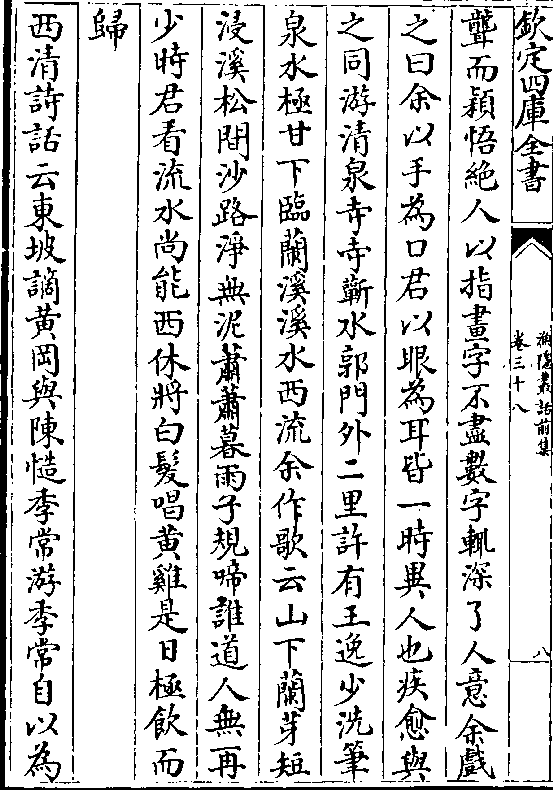 欽定四庫全書
漁隱叢話前集
卷三十八
八
聾而穎悟絶人以指畫字不盡數字輒深了人意余戲
之曰余以手為口君以眼為耳皆一時異人也疾愈與
之同游清泉寺寺蘄水郭門外二里許有王逸少洗筆
泉水極甘下臨蘭溪溪水西流余作歌云山下蘭芽短
浸溪松間沙路淨無泥蕭蕭暮雨子規啼誰道人無再
少時君看流水尚能西休將白髮唱黄雞是日極飲而
歸
西清詩話云東坡謫黄岡與陳慥季常游季常自以為